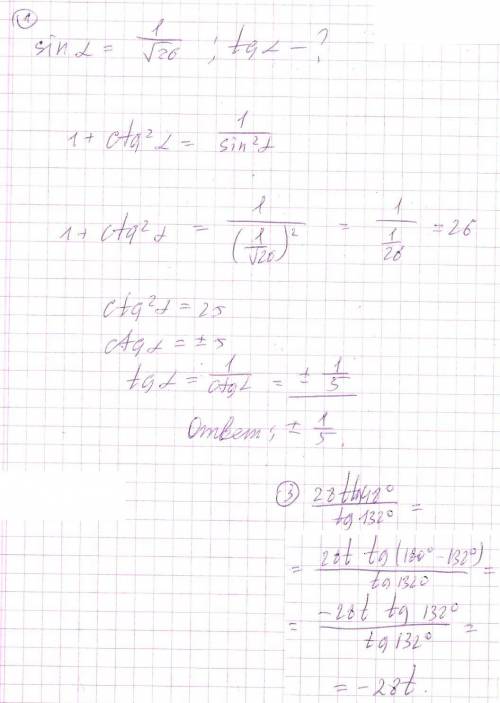 ① sin α = 1/√26 ; tg α – ?
1 + ctg² α = 1/sin² α
1 + ctg² α = 1/(1/√26)² = 1/(1/26) = 26
ctg² α = 25
ctg α = ± 5
tg α = 1/ctg α = ± 1/5
Ответ: ± 1/5.
③ 28t tg48°/tg 132° =
= 28t tg (180° – 132°)/tg 132° =
= –28t tg 132°/tg 132° =
= –28t.